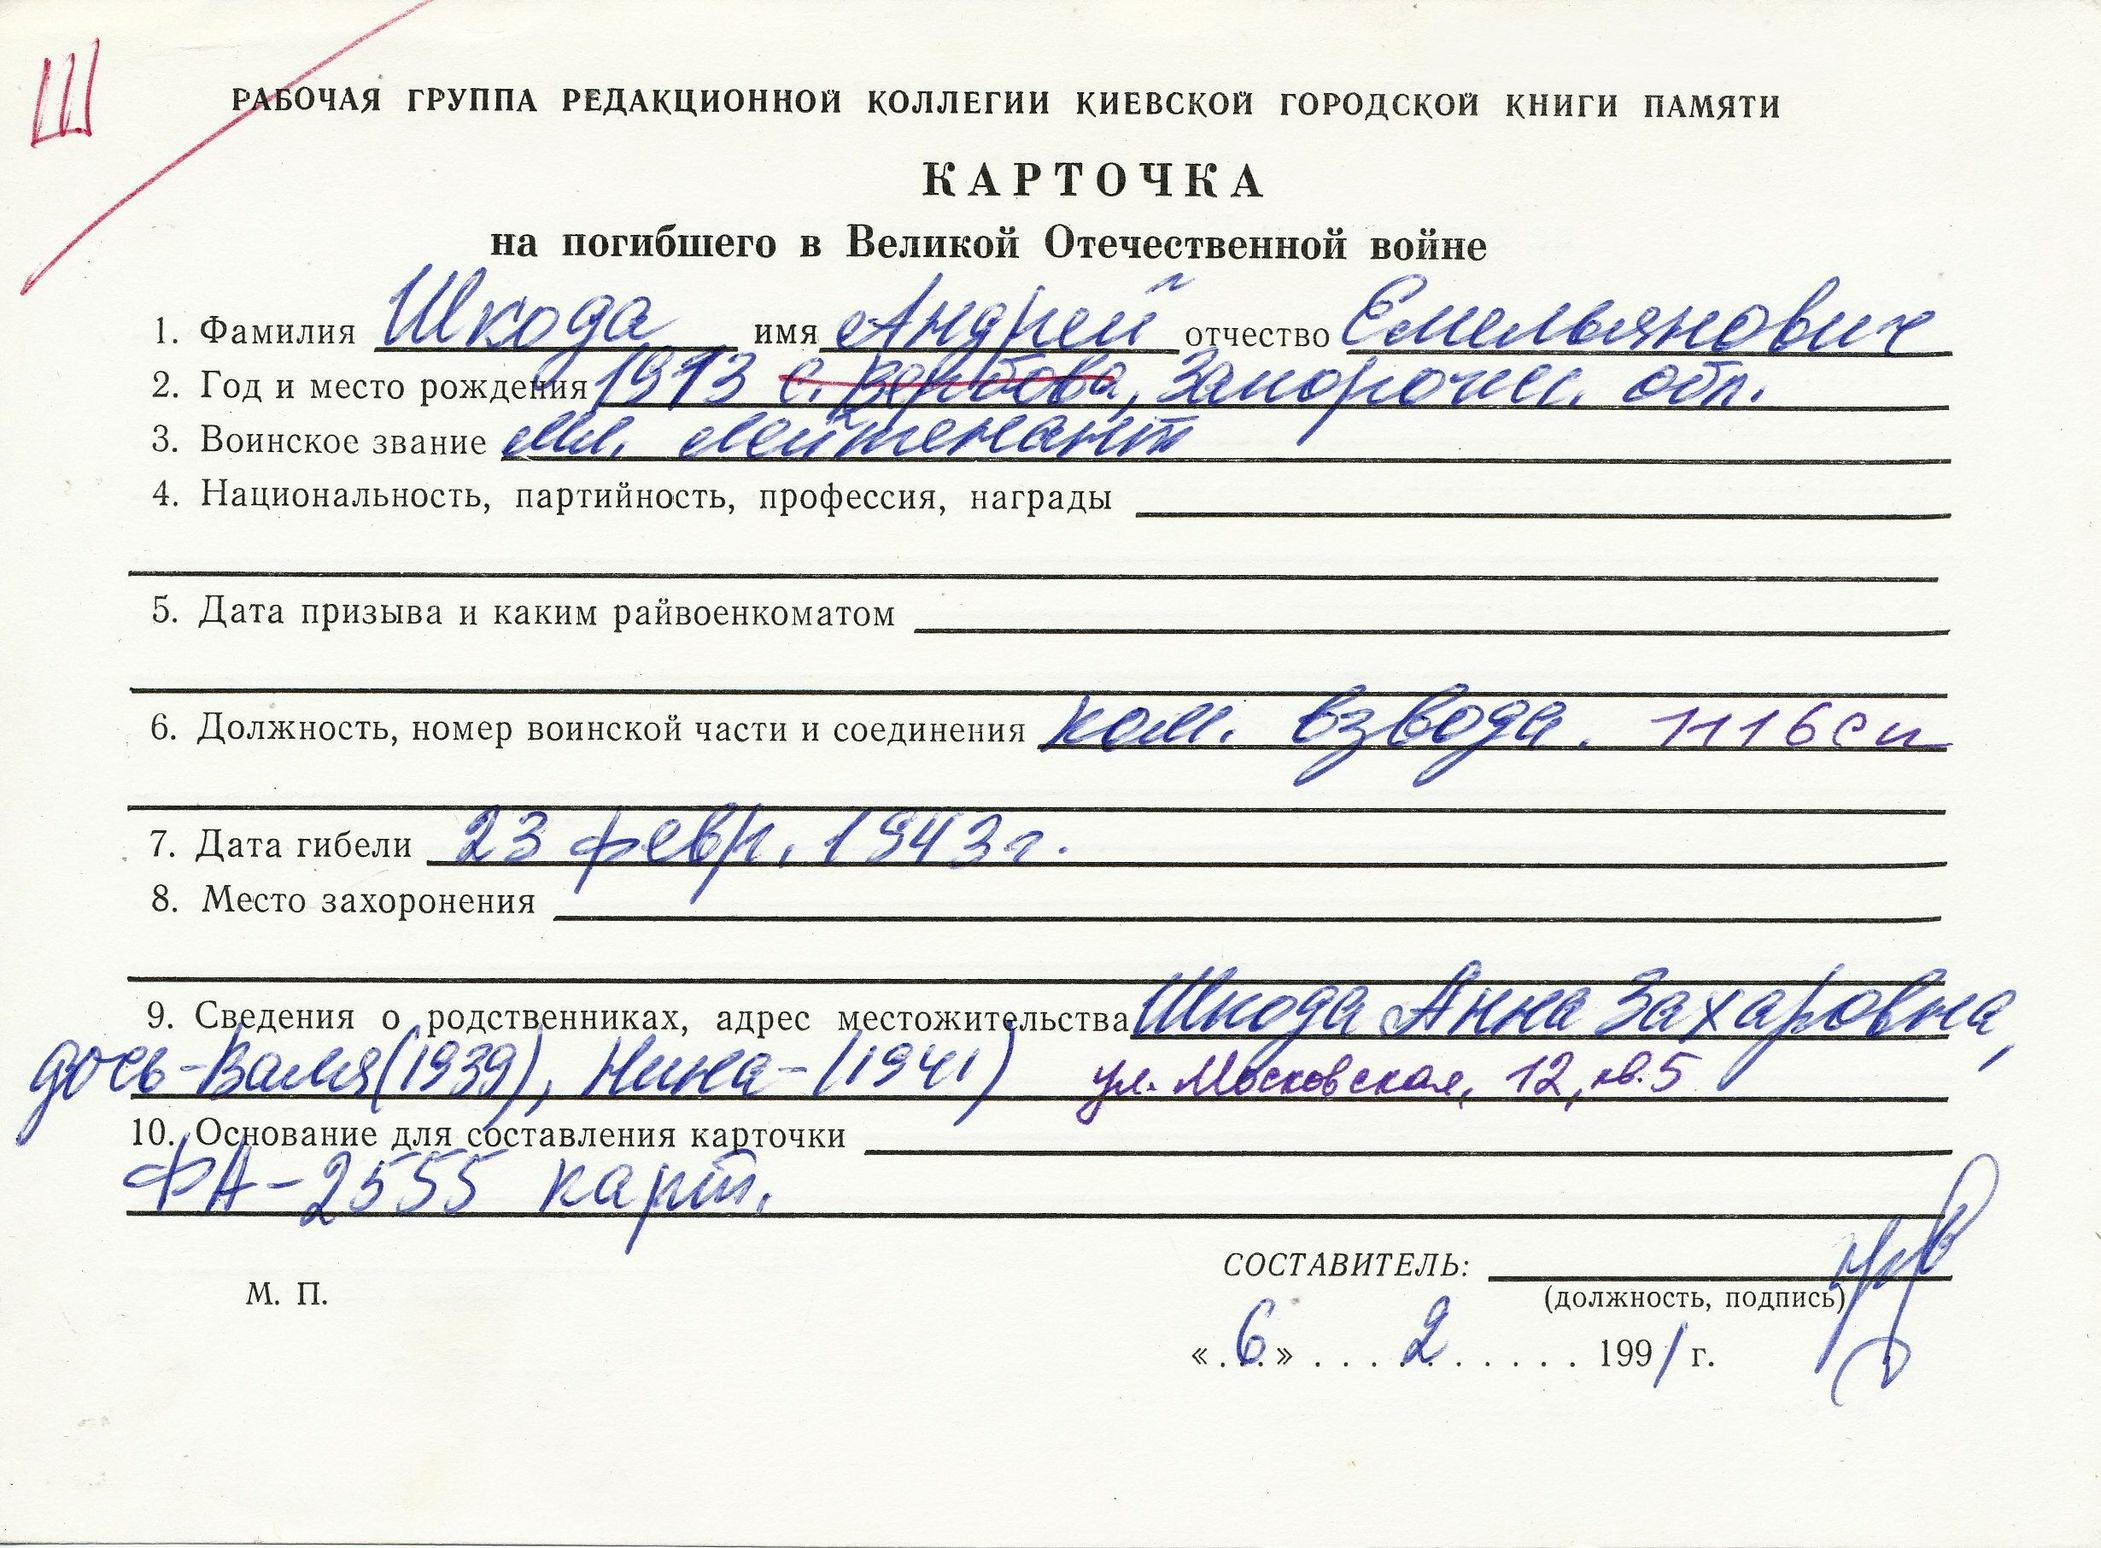 Ш
РАБОЧАЯ ГРУППА РЕДАКЦИОННОЙ КОЛЛЕГИИ КИЕВСКОЙ ГОРОДСКОЙ КНИГИ ПАМЯТИ
КАРТОЧКА
на погибшего в Великой Отечественной войне
1. Фамилия Шкода имя Андрей отчество Емельянович
2. Год и место рождения 1913 с. Вербова, Запорожск. обл.
3. Воинское звание Мл. лейтенант
4. Национальность, партийность, профессия, награды
5. Дата призыва и каким райвоенкоматом
6. Должность, номер воинской части и соединения ком. взвода. 1116 сп
7. Дата гибели 23 февр. 1943 г.
8. Место захоронения
9. Сведения о родственниках, адрес местожительства Шкода Анна Захаровна,
дочь-Валя (1939), Нина-(1941) ул. Московская, 12, кв. 5
10. Основание для составления карточки
ФА-2555 карт.
СОСТАВИТЕЛЬ:
М. П.
(должность, подпись)
«. 6 » . . . . 2 . . . . . . 1991 г.